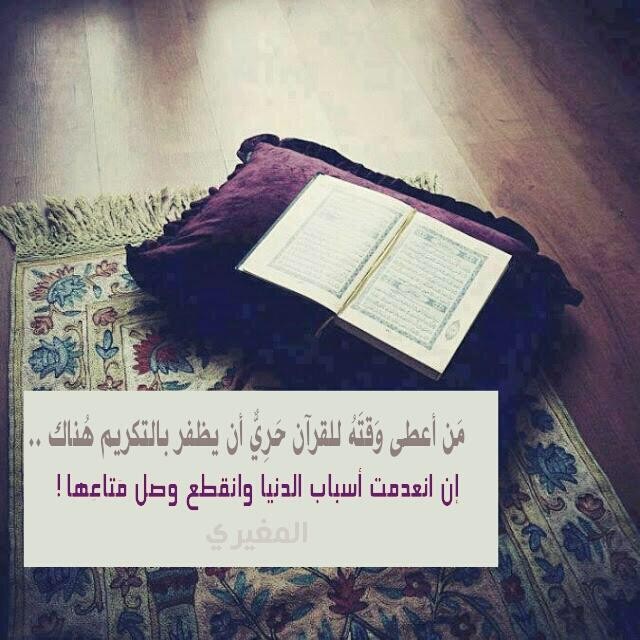 مَن أعطى وَقتَهُ للقرآن حَرِيٌّ أن يظفر بالتكريم هُناك ..
إن انعدمت أسباب الدنيا وانقطع وصل مَتاعِها !
المغيري